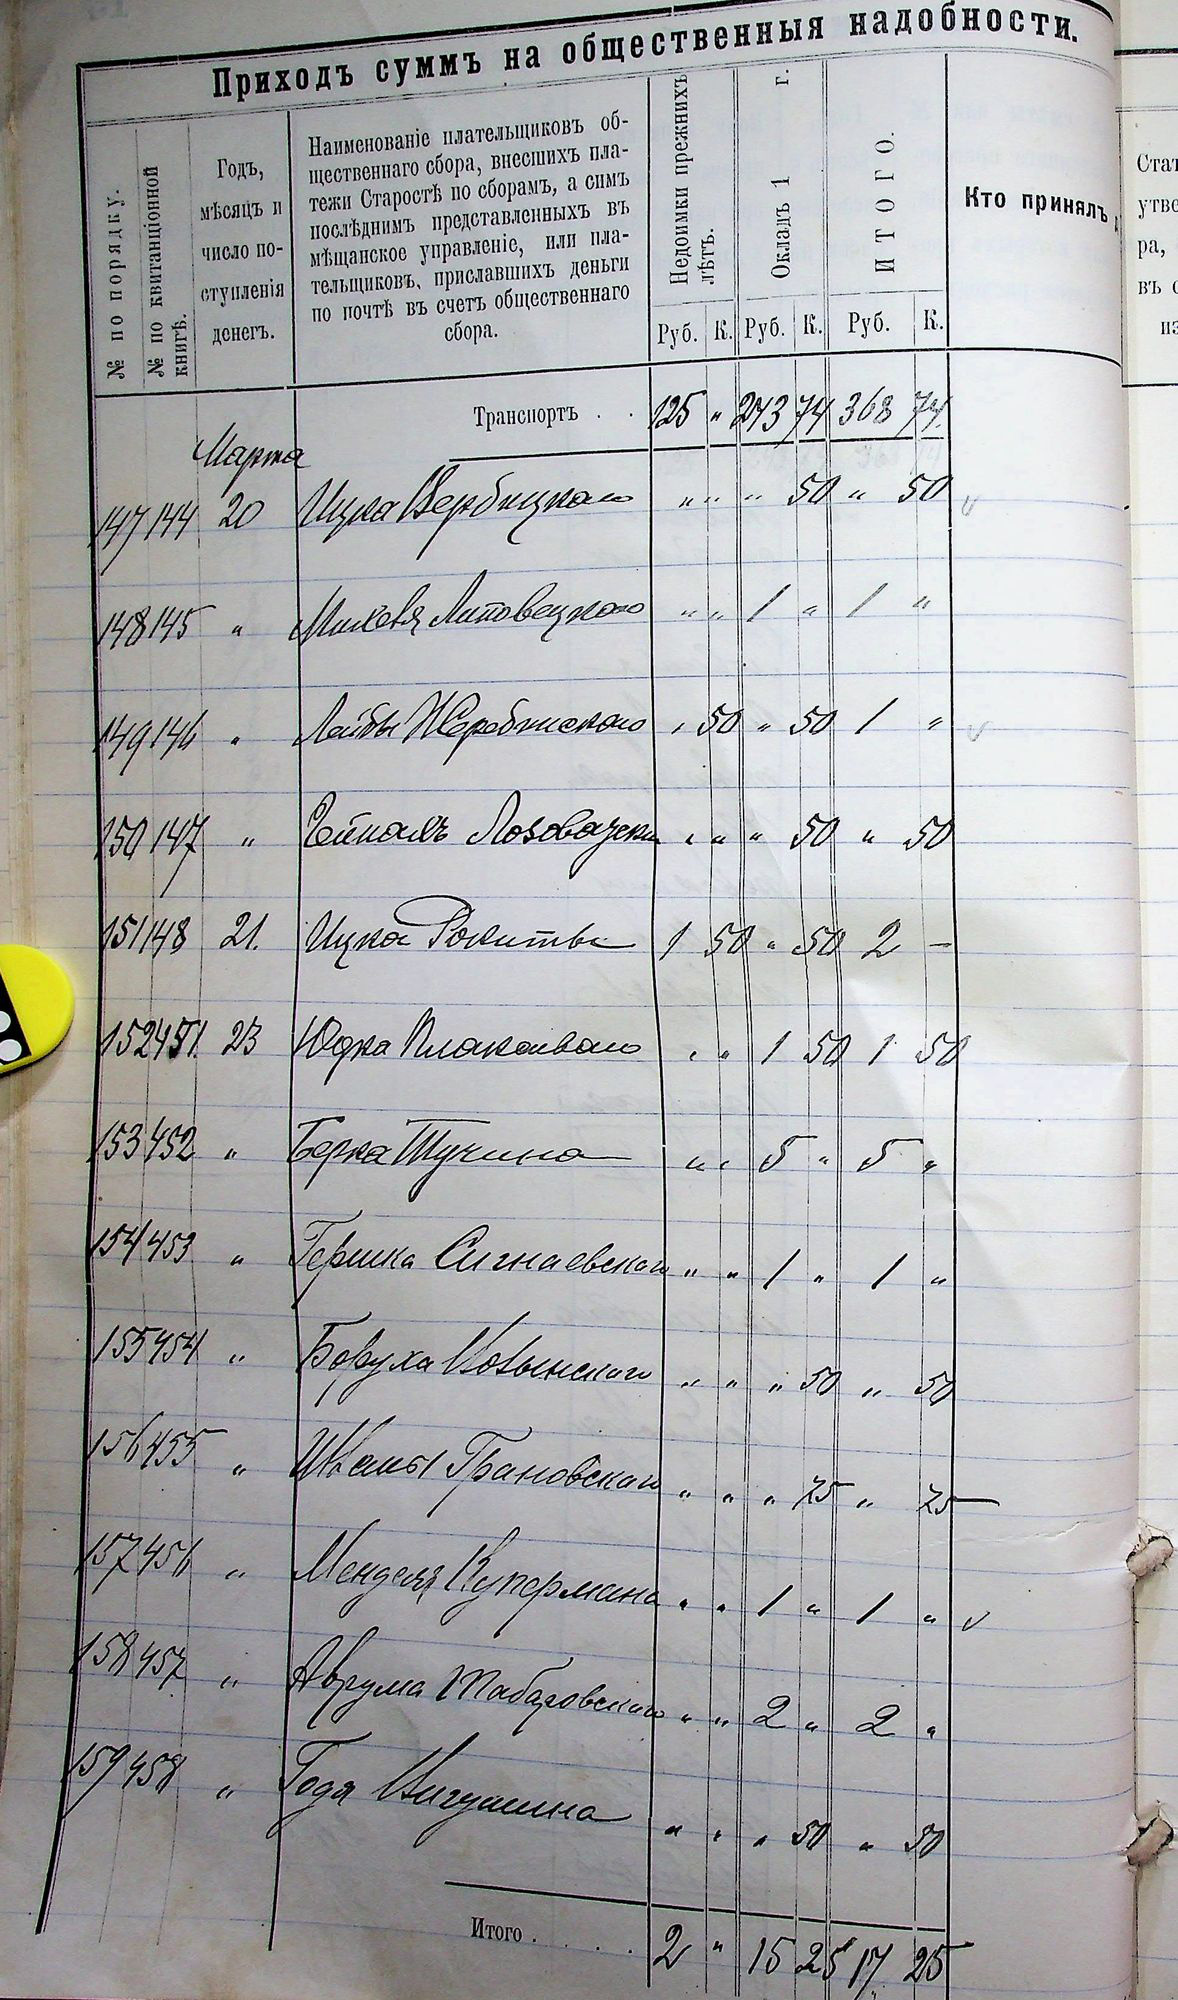 Приходъ суммъ на общественныя надобности.
№ по порядку.
№ по квитанціонной книгѣ.
Годъ,
мѣсяцъ и
число по-
ступленія
денегъ.
Наименованіе плательщиковъ об-
щественнаго сбора, внесшихъ пла-
тежи Старостѣ по сборамъ, а симъ
послѣднимъ представленныхъ въ
мѣщанское управленіе, или пла-
тельщиковъ, приславшихъ деньги
по почтѣ въ счетъ общественнаго
сбора.
Недоимки прежнихъ
лѣтъ.
Окладъ 1 г.
ИТОГО.
Кто принялъ
Руб. К. Руб. К. Руб. К.
Транспортъ . . 125 " 243 74 368 74.
Марта
147 144 20 Ицка Вербицкаго " " " 50 " 50
148 145 " Липовецкаго " " 1 " 1 "
149 146 " Лейбы Жеребинскаго " 50 " 50 1 "
150 147 " " " " 50 " 50
151 148 21. Ицка Рокиты 1 50 " 50 2 —
152 451. 23 Юдка " " 1 50 1 50
153 452 " Берка Тучина " " 5 " 5 "
154 453 " Гершка Сигнаевскаго " " 1 " 1 "
155 454 " Боруха " " " 50 " 50
156 455 " Грановскаго " " " 75 " 75
157 456 " Менделя Купермана " " 1 " 1 "
158 457 " Аврума " " 2 " 2 "
159 458 " " " " 50 " 50
Итого . . . . 2 " 15 25 17 25
Стат
утве
ра,
въ с
из